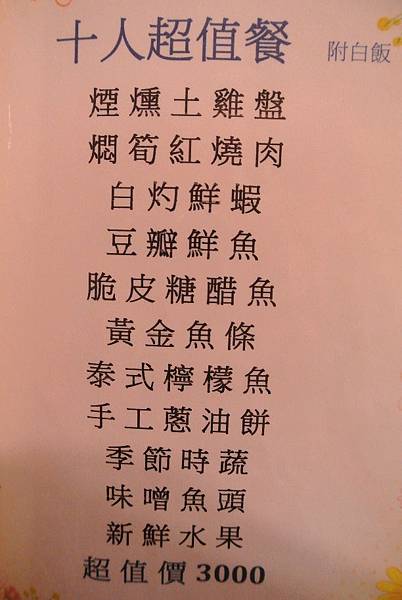 十人超值餐 附白飯
煙燻土雞盤
燜筍紅燒肉
白灼鮮蝦
豆瓣鮮魚
脆皮糖醋魚
黃金魚條
泰式檸檬魚
手工蔥油餅
季節時蔬
味噌魚頭
新鮮水果
超值價3000